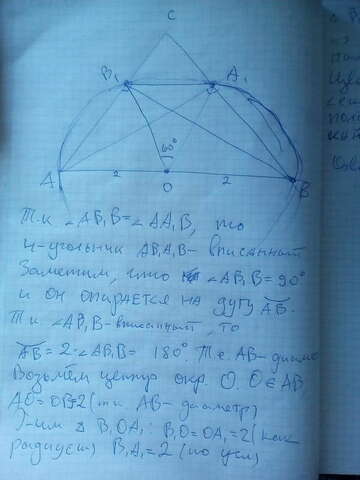 C
B₁ A₁
60°
A 2 O 2 B
Т.к. ∠AB₁B=∠AA₁B, то
4-угольник AB₁A₁B - вписанный
Заметим, что ∠AB₁B=90°
и он опирается на дугу AB.
Т.к ∠AB₁B-вписанный, то
AB=2·∠AB₁B= 180°. Т.е. AB-диаме
Возьмём центр окр. O. O∈AB
AO=OB=2(т.к AB-диаметр)
B₁OA₁: B₁O=OA₁=2(как
радиусы) B₁A₁=2 (по усл)